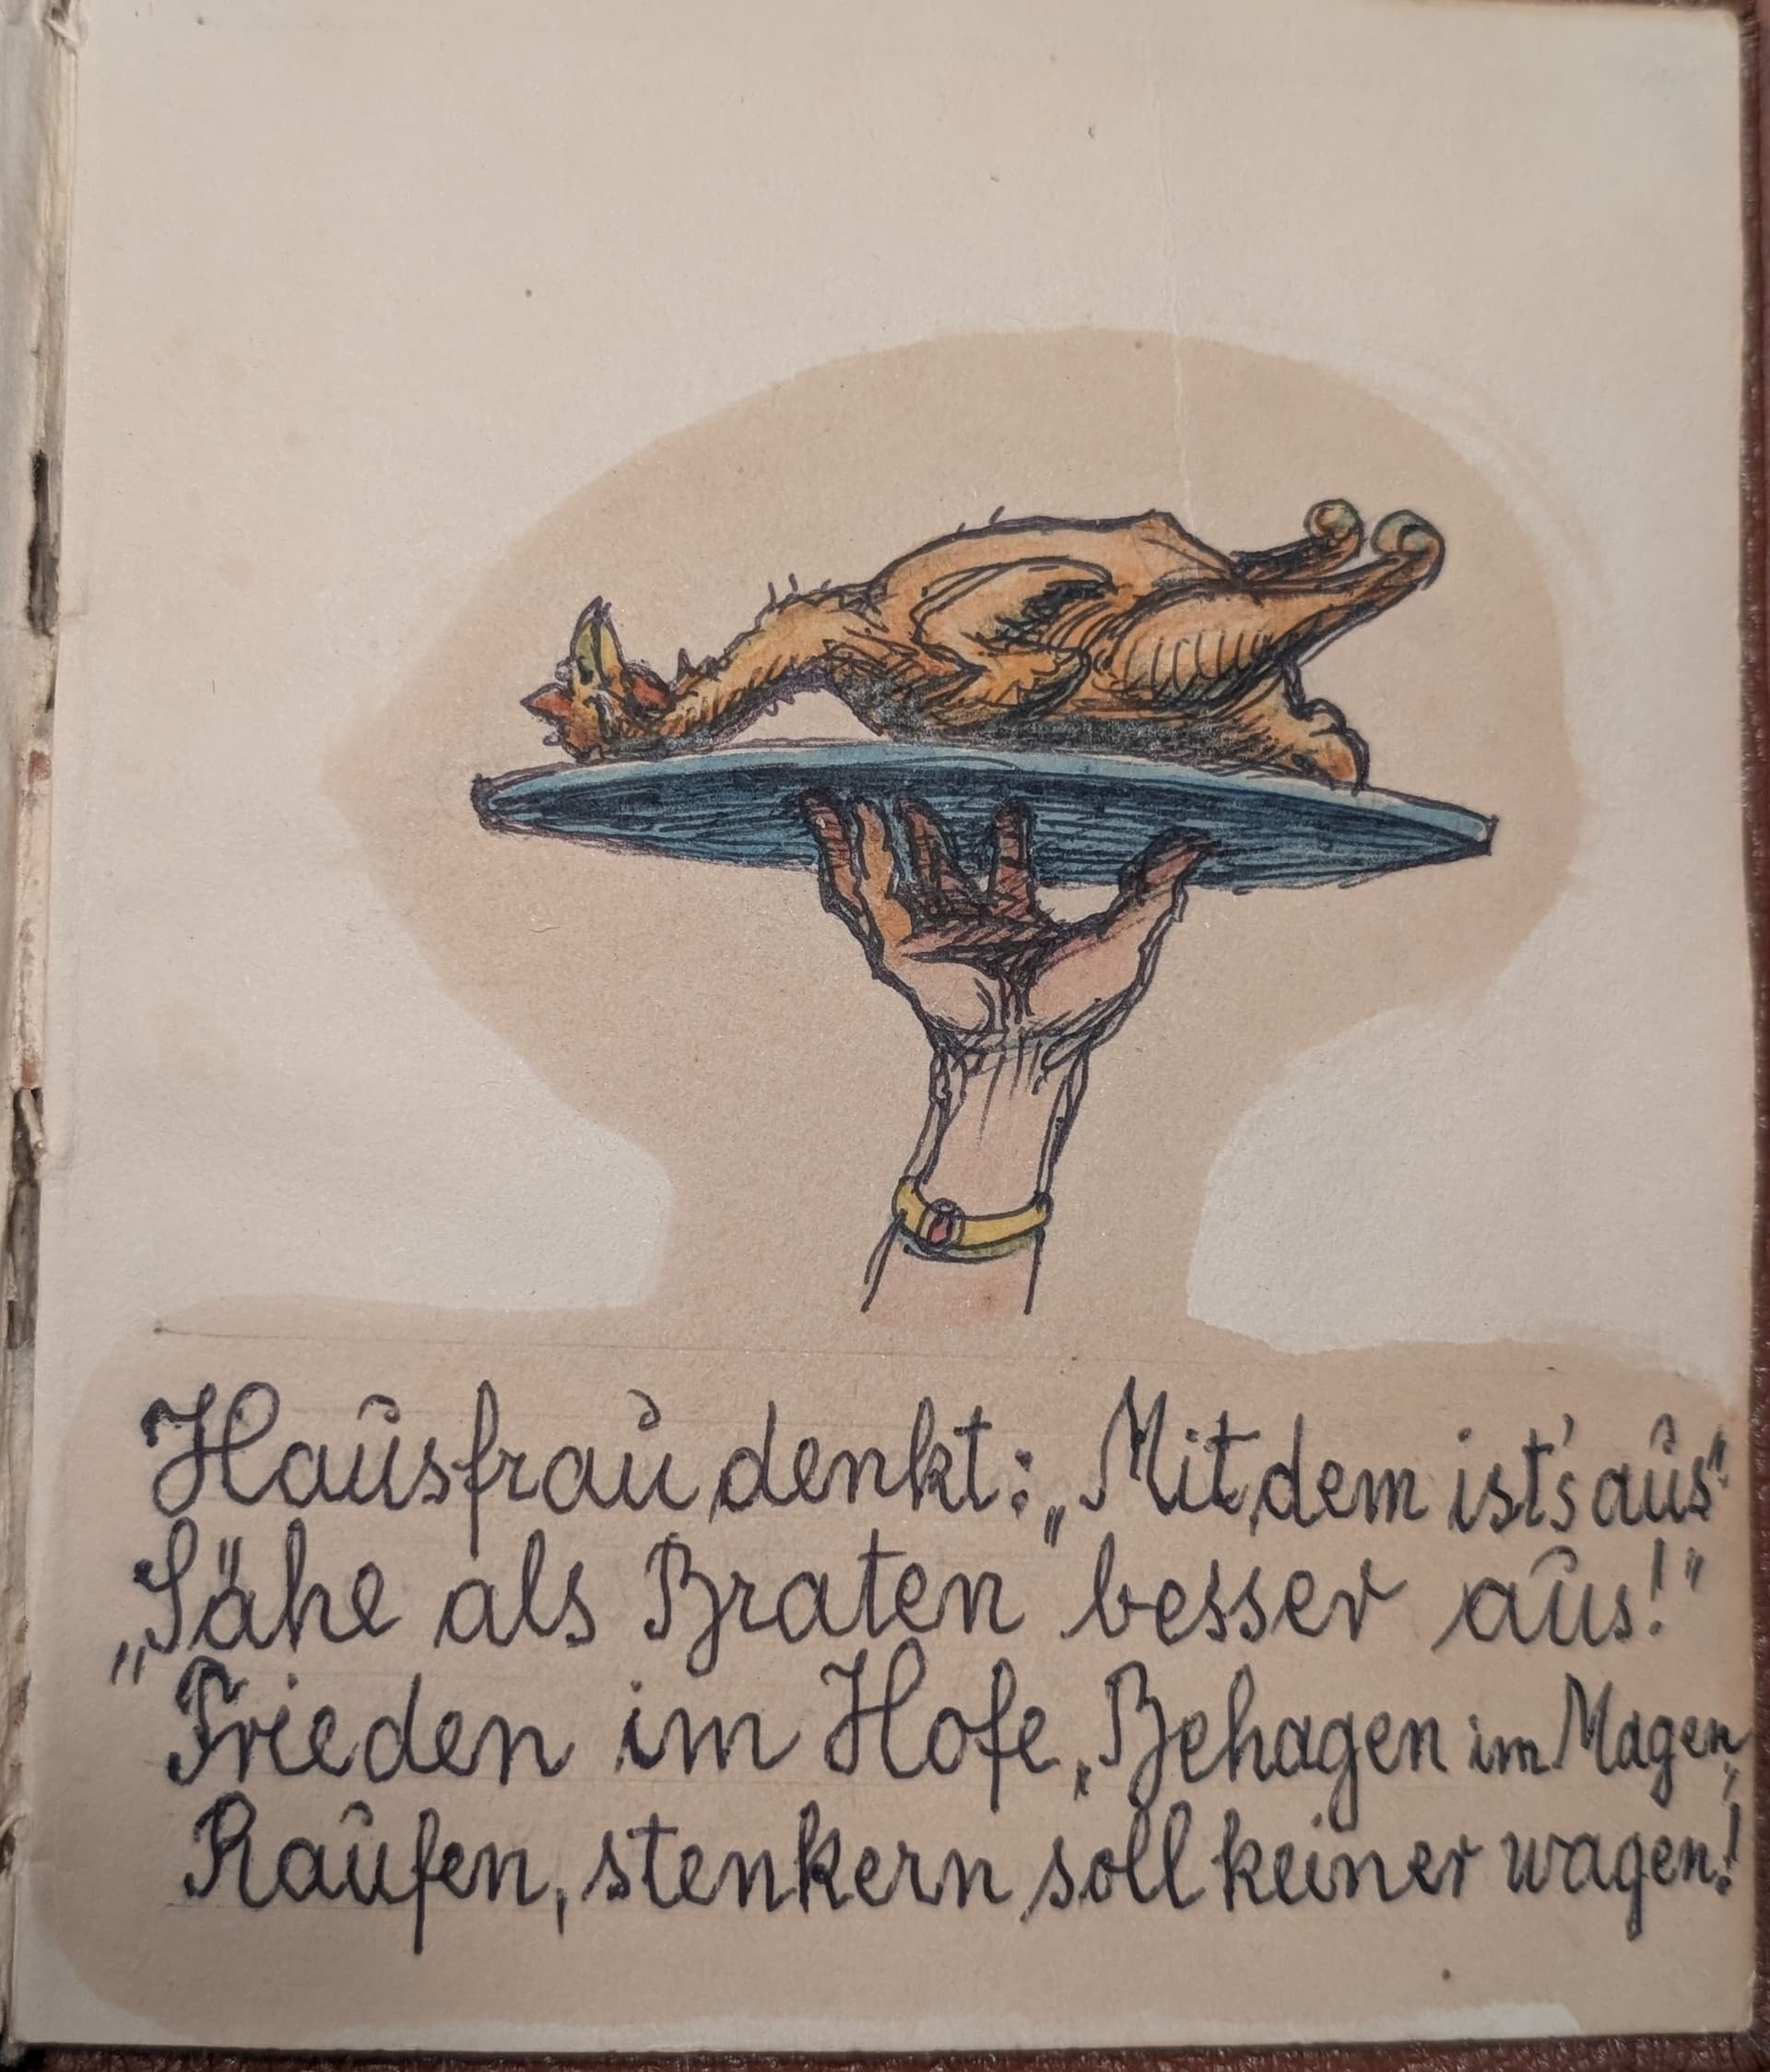 Hausfrau denkt: „Mit dem ist's aus"
„Sähe als Braten besser aus!"
Frieden im Hofe, Behagen im Magen,
Raufen, stenkern soll keiner wagen!